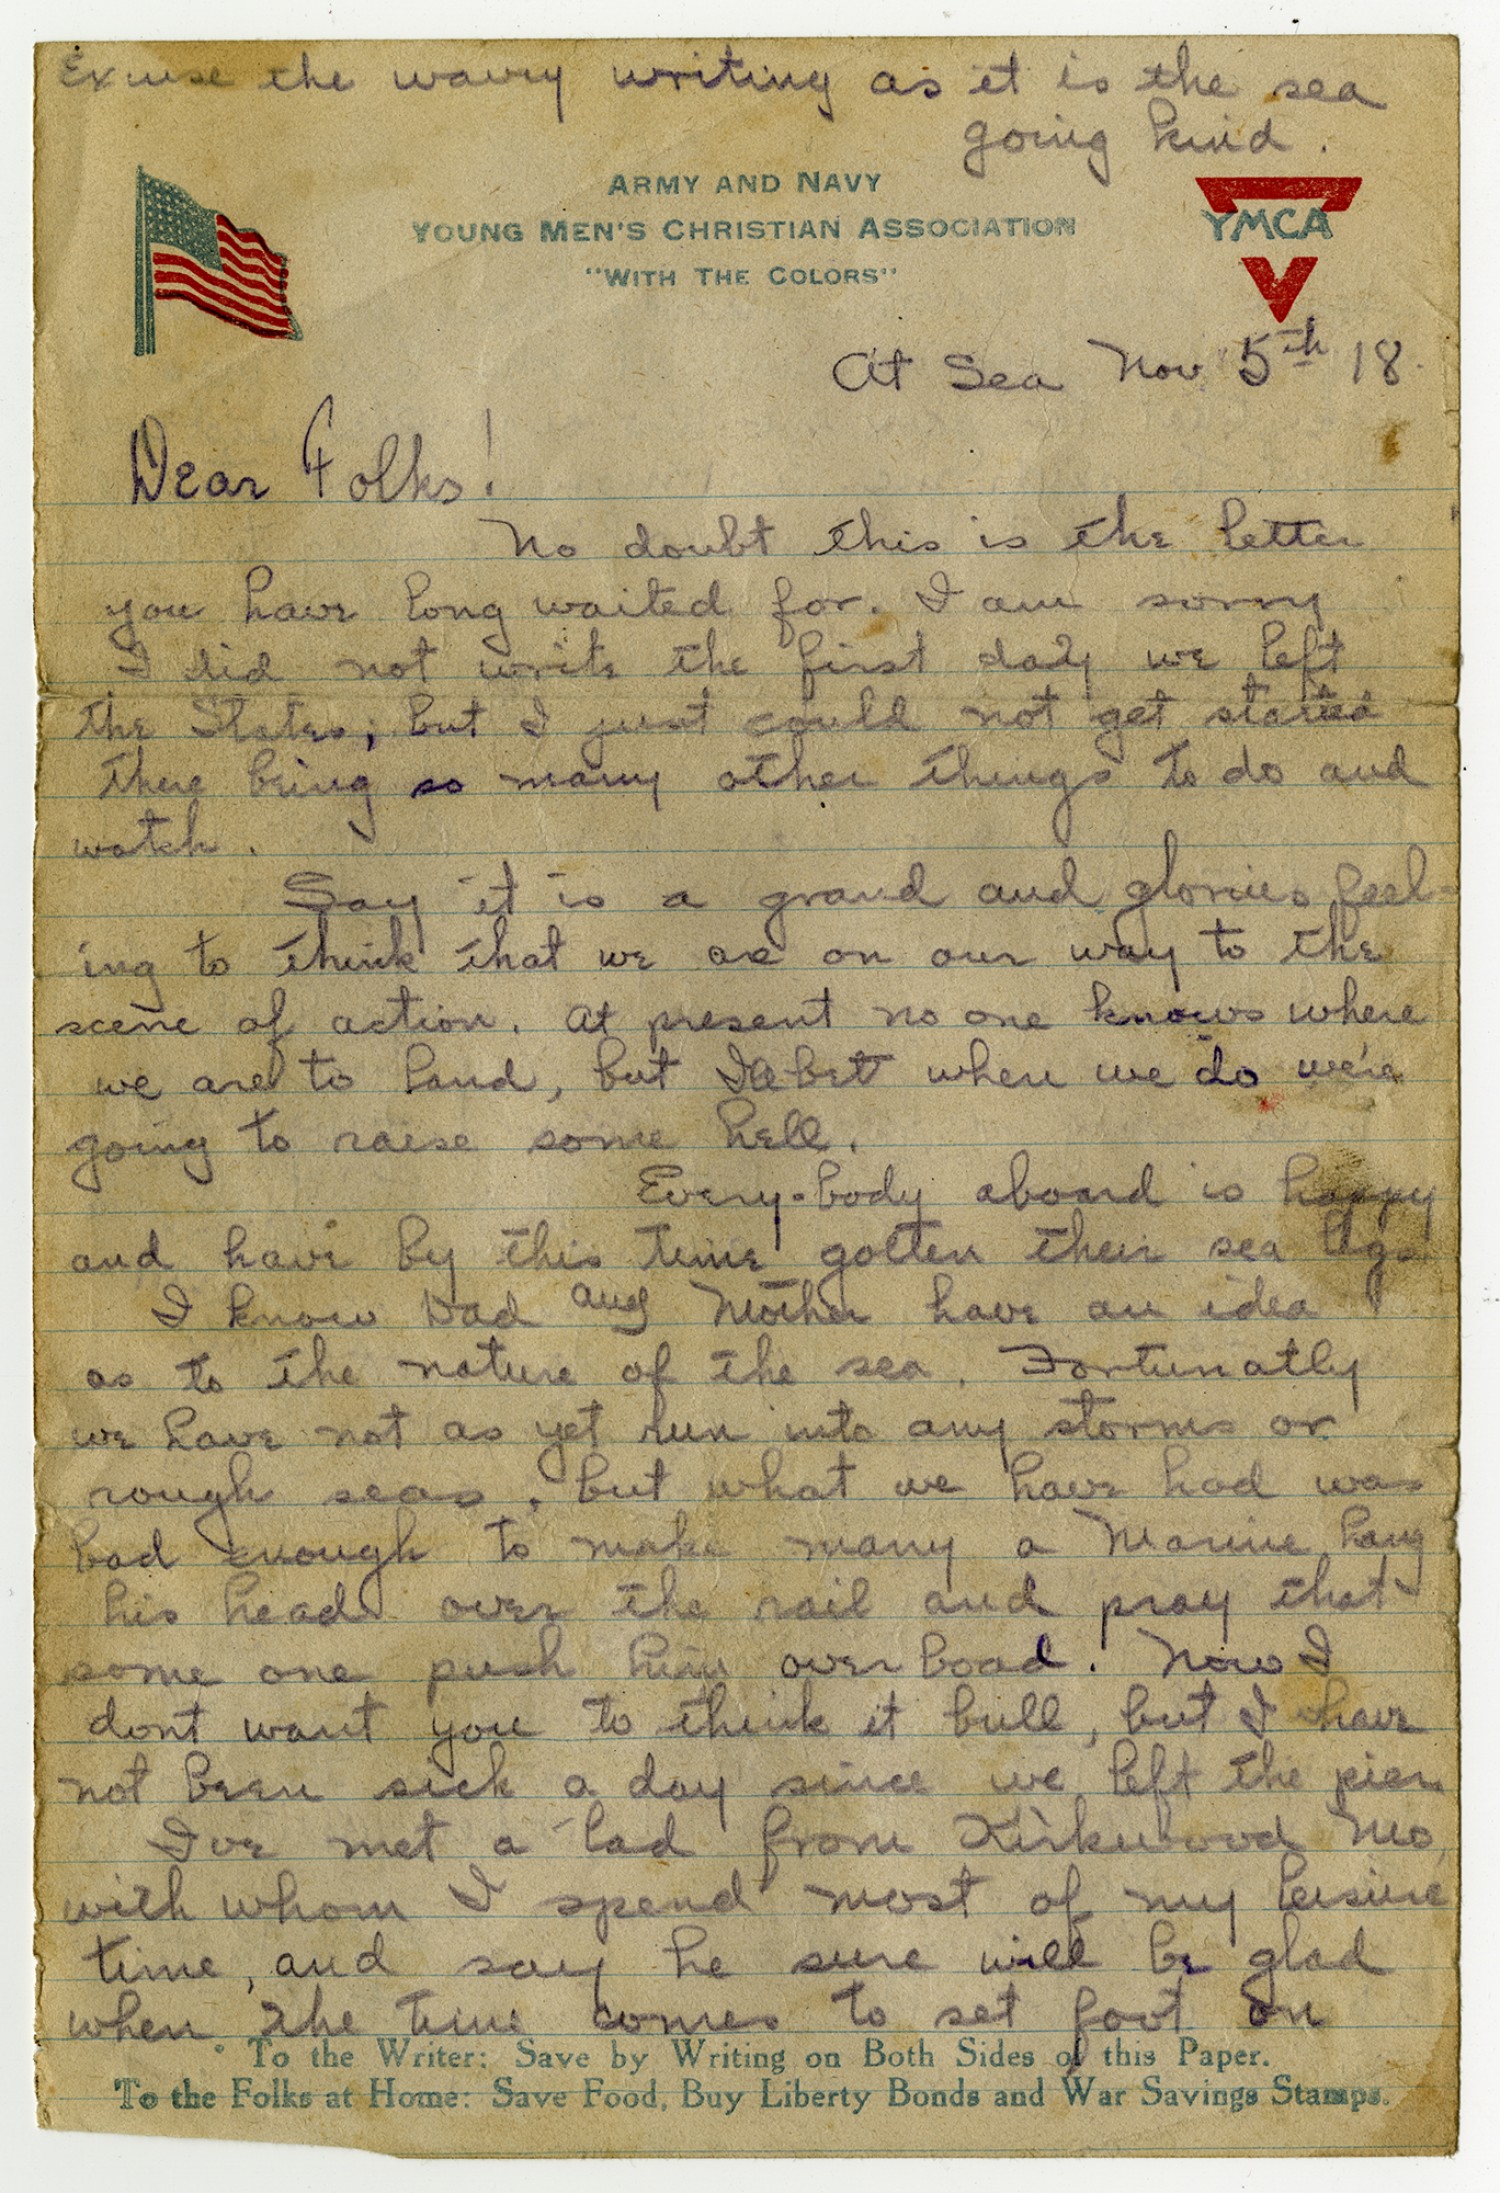 Excuse the wavry writing as it is the sea
going kind.
ARMY AND NAVY
YOUNG MEN'S CHRISTIAN ASSOCIATION
"WITH THE COLORS"
YMCA
At Sea Nov 5th 18.
Dear Folks!
No doubt this is the letter
you have long waited for. I am sorry
I did not write the first day we left
the States, but I just could not get started
there being so many other things to do and
watch.
Say it is a grand and glorius feel-
ing to think that we are on our way to the
scene of action. At present no one knows where
we are to land, but I'll bet when we do we're
going to raise some hell.
Every-body aboard is happy
and have by this time gotten their sea legs
I know Dad and Mother have an idea
as to the nature of the sea. Fortunatly
we have not as yet run into any storms or
rough seas, but what we have had was
bad enough to make many a Marine hang
his head over the rail and pray that
some one push him over boad. Now I
dont want you to think it bull, but I have
not been sick a day since we left the pier.
I've met a lad from Kirkwood Mo,
with whom I spend most of my leisure
time, and say he sure will be glad
when the time comes to set foot on
To the Writer: Save by Writing on Both Sides of this Paper.
To the Folks at Home: Save Food, Buy Liberty Bonds and War Savings Stamps.